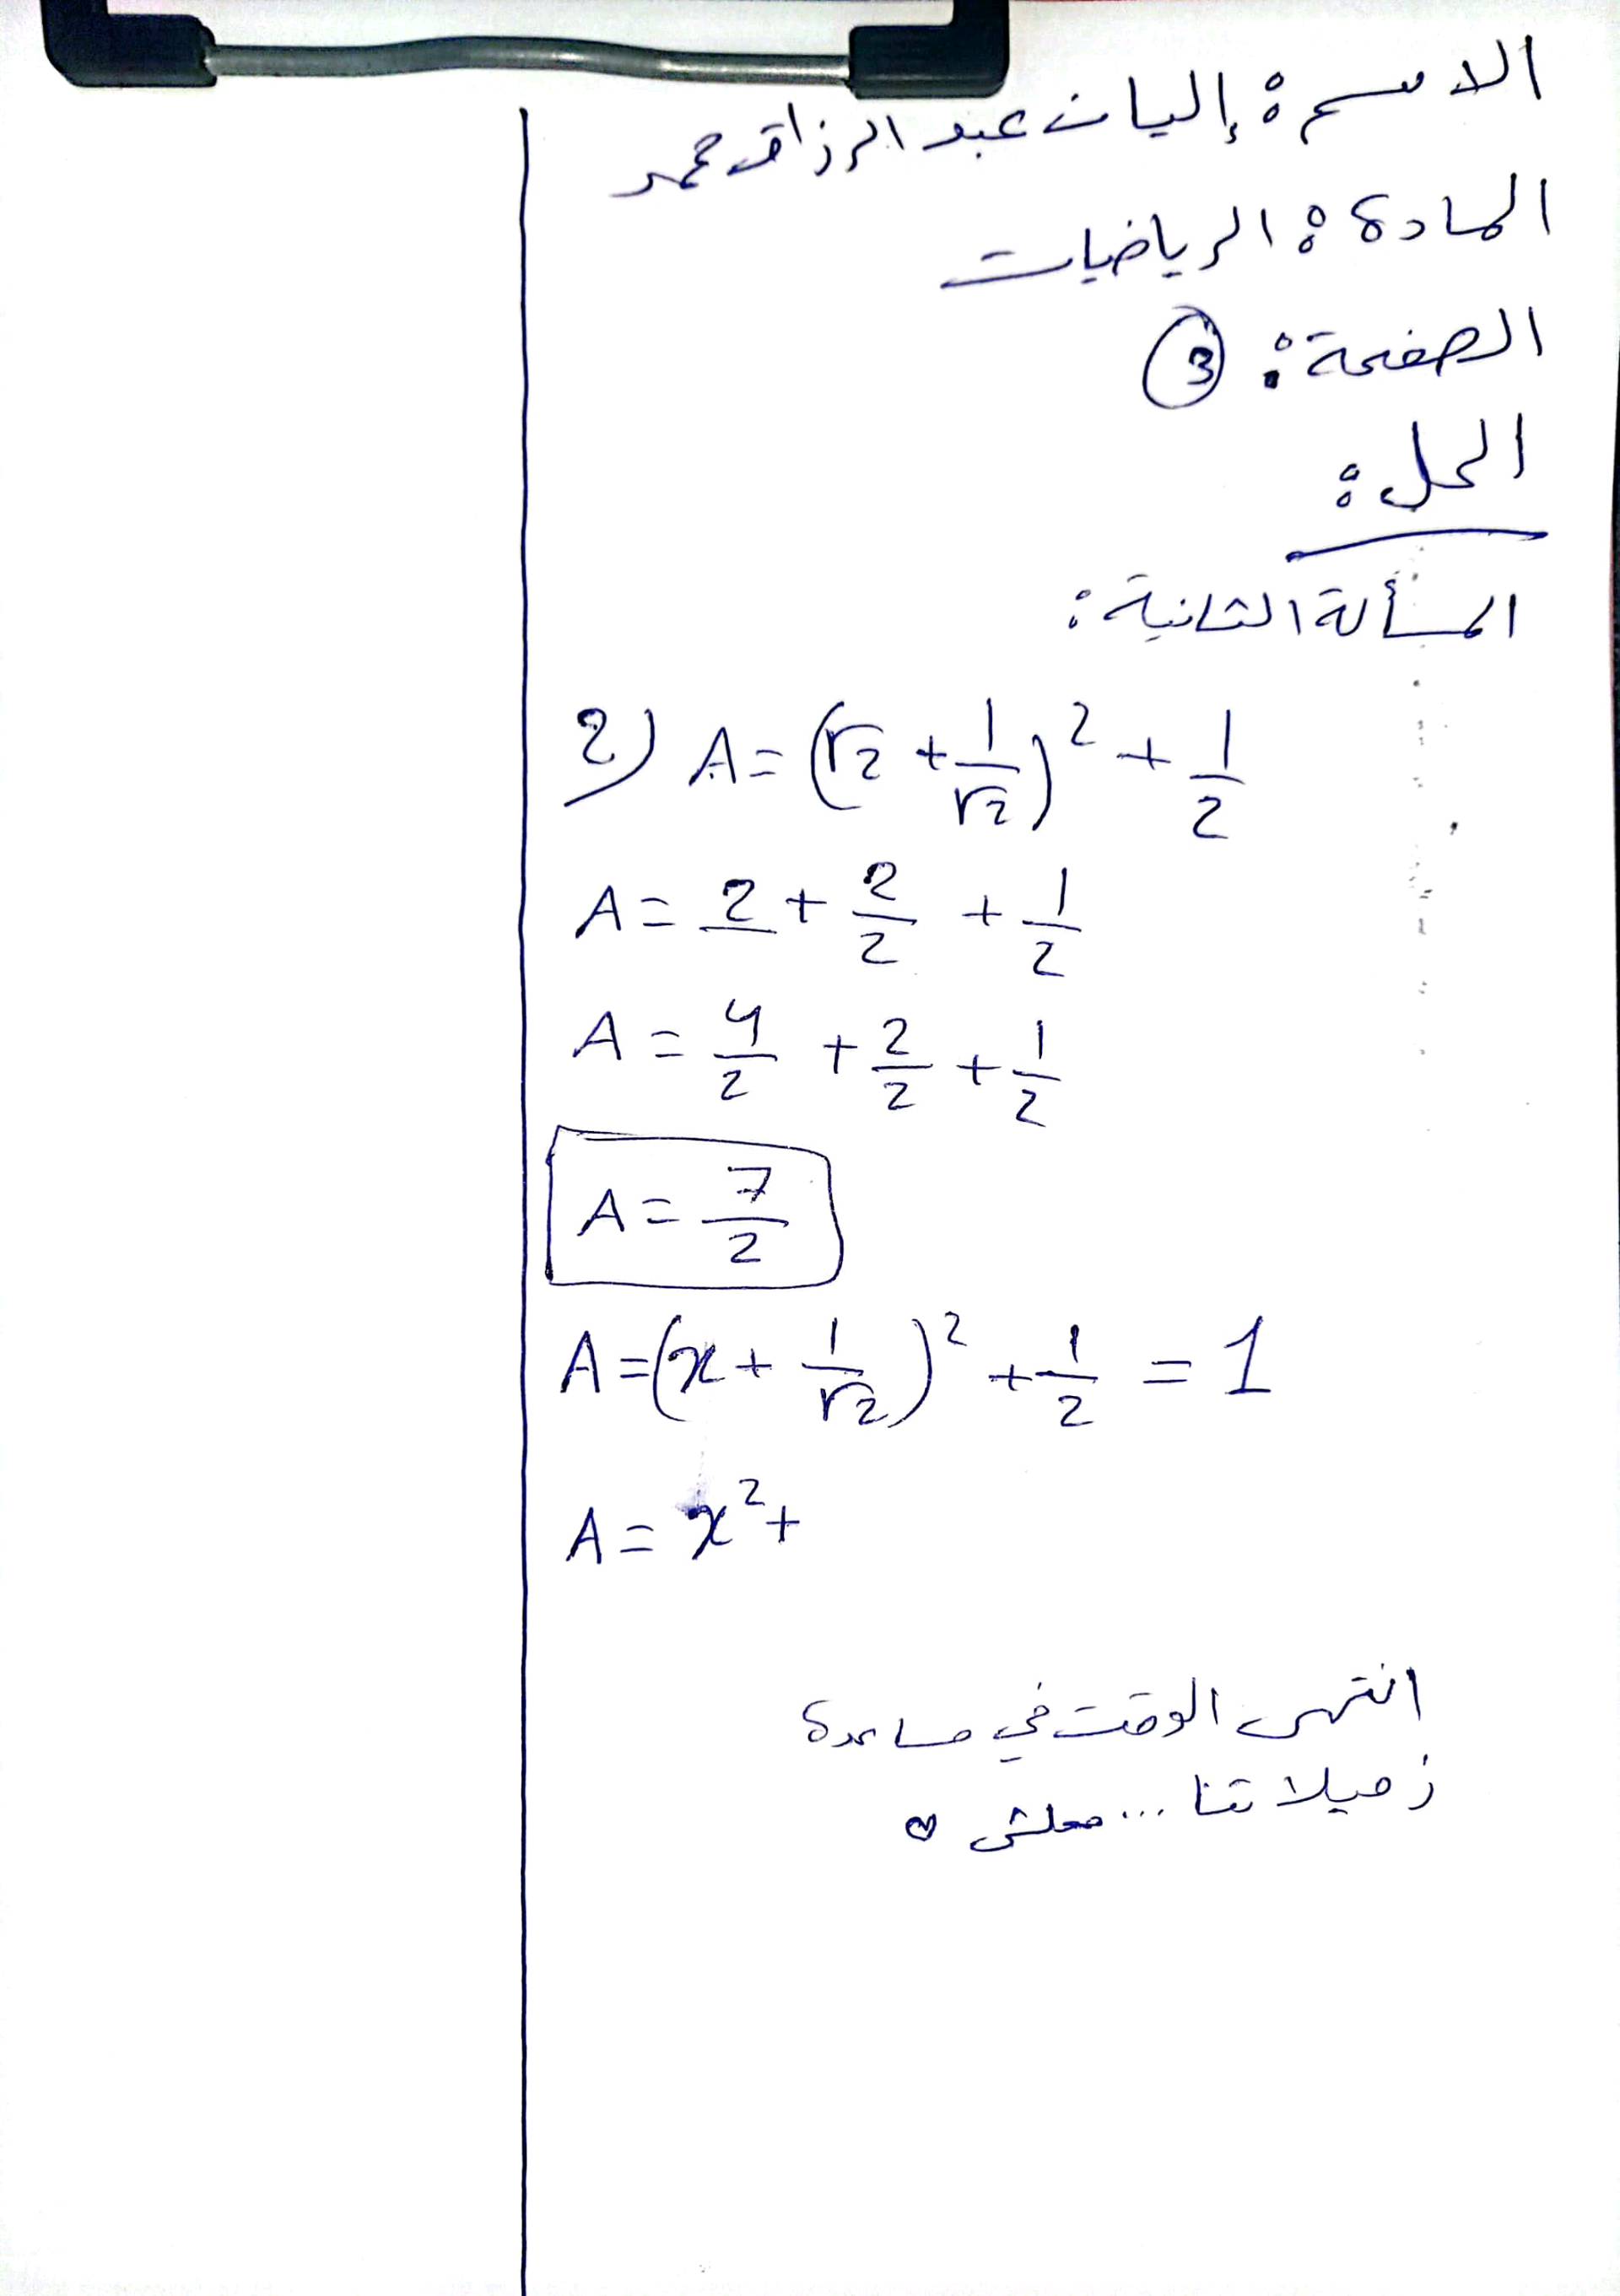 الاسم: إليان عبد الرزاق محمد
المادة: الرياضيات
الصفحة: 3
الحل:
المسألة الثانية:
2) A = (√2 + 1/√2)² + 1/2
A = 2 + 2/2 + 1/2
A = 4/2 + 2/2 + 1/2
A = 7/2
A = (x + 1/√2)² + 1/2 = 1
A = x² +
انتهى الوقت في مساعدة
زميلاتنا ... معلش ♡